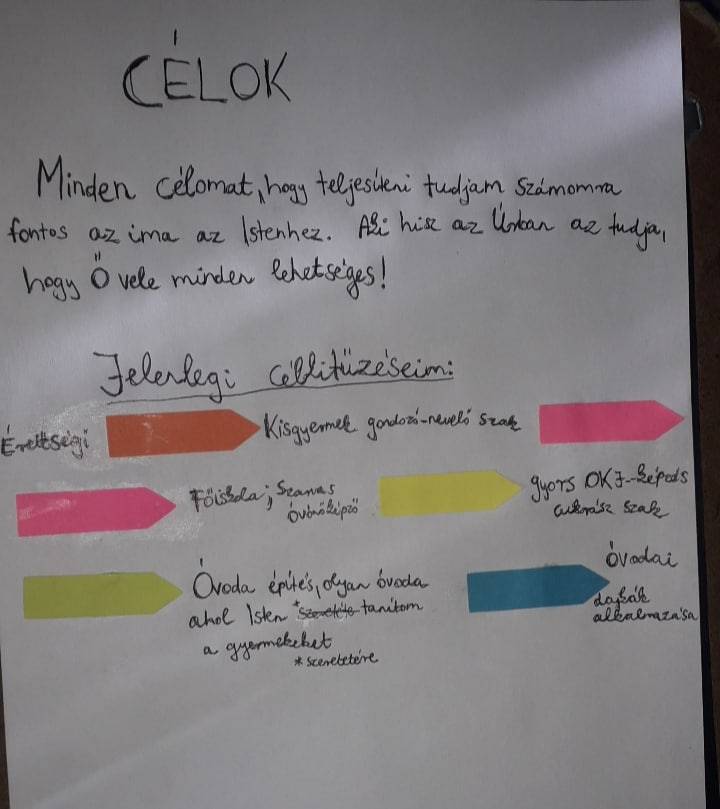 CÉLOK
Minden célomat, hogy teljesíteni tudjam számomra
fontos az ima az Istenhez. Aki hisz az Úrban az tudja,
hogy Ő vele minden lehetséges!
Jelenlegi célkitűzéseim:
Érettségi Kisgyermek gondozó-nevelő szak
Főiskola; Szarvas
óvónőképző
gyors OKJ-képzés
cukrász szak
Óvoda építés, olyan óvoda
ahol Isten *szeretete tanítom
a gyermekeket
*szeretetére
óvodai
dajkák
alkalmazása